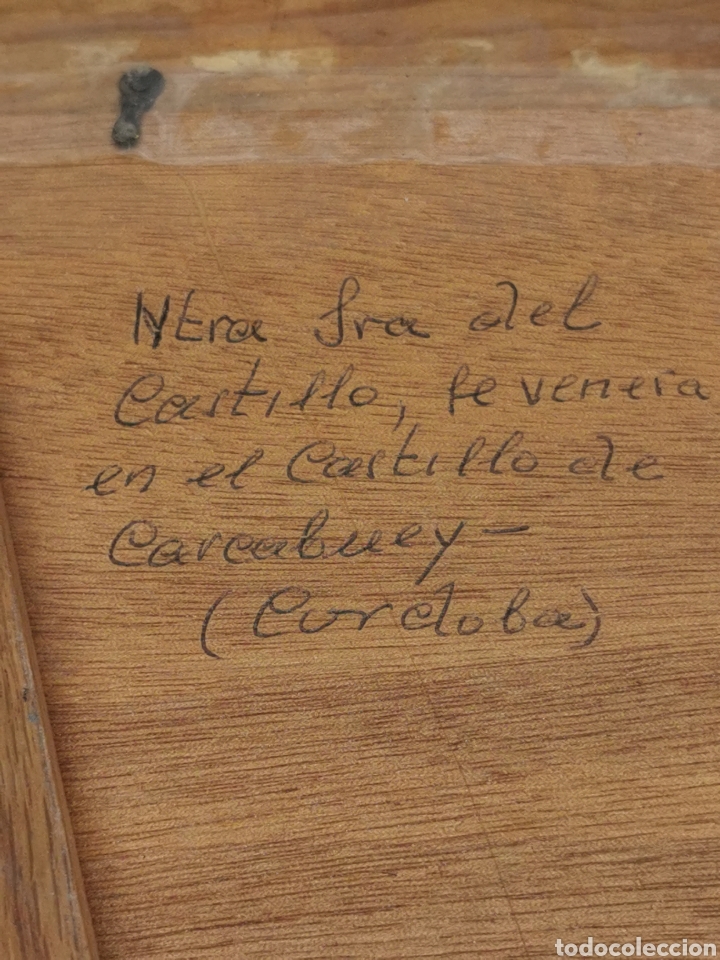 Ntra Sra del
Castillo, se venera
en el Castillo de
Carcabuey-
(Cordoba)
todocoleccion